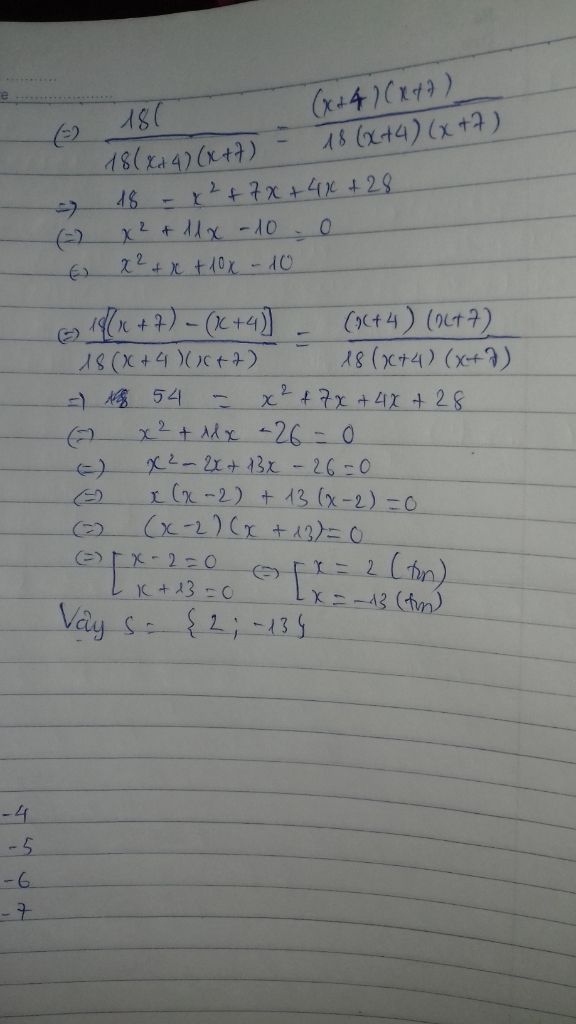 (=) 18( / 18(x+4)(x+7) = (x+4)(x+7) / 18(x+4)(x+7)
=) 18 = x² + 7x + 4x + 28
(=) x² + 11x - 10 = 0
(=) x² + x + 10x - 10
(=) 18[(x+7) - (x+4)] / 18(x+4)(x+7) = (x+4)(x+7) / 18(x+4)(x+7)
=) 54 = x² + 7x + 4x + 28
(=) x² + 11x - 26 = 0
(=) x² - 2x + 13x - 26 = 0
(=) x(x-2) + 13(x-2) = 0
(=) (x-2)(x+13) = 0
(=) [ x - 2 = 0 (=) [ x = 2 (tm)
x + 13 = 0 x = -13 (tm)
Vậy S = {2; -13}
-4
-5
-6
-7